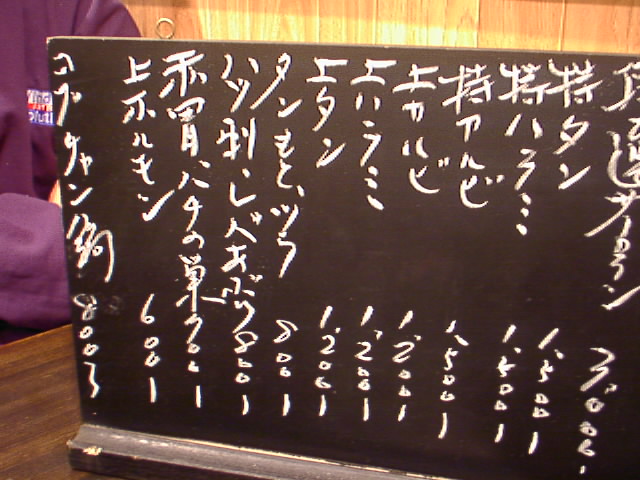 特選サーロイン 3,000-
特タン 1,500-
特ハラミ 1,500-
特カルビ 1,500-
上カルビ 1,200-
上ハラミ 1,200-
上タン 1,200-
タンもと、ツラ 800-
ハツ刺し、レバ 800-
赤胃、ハチの巣 700-
上ホルモン 600-
コプチャン 800